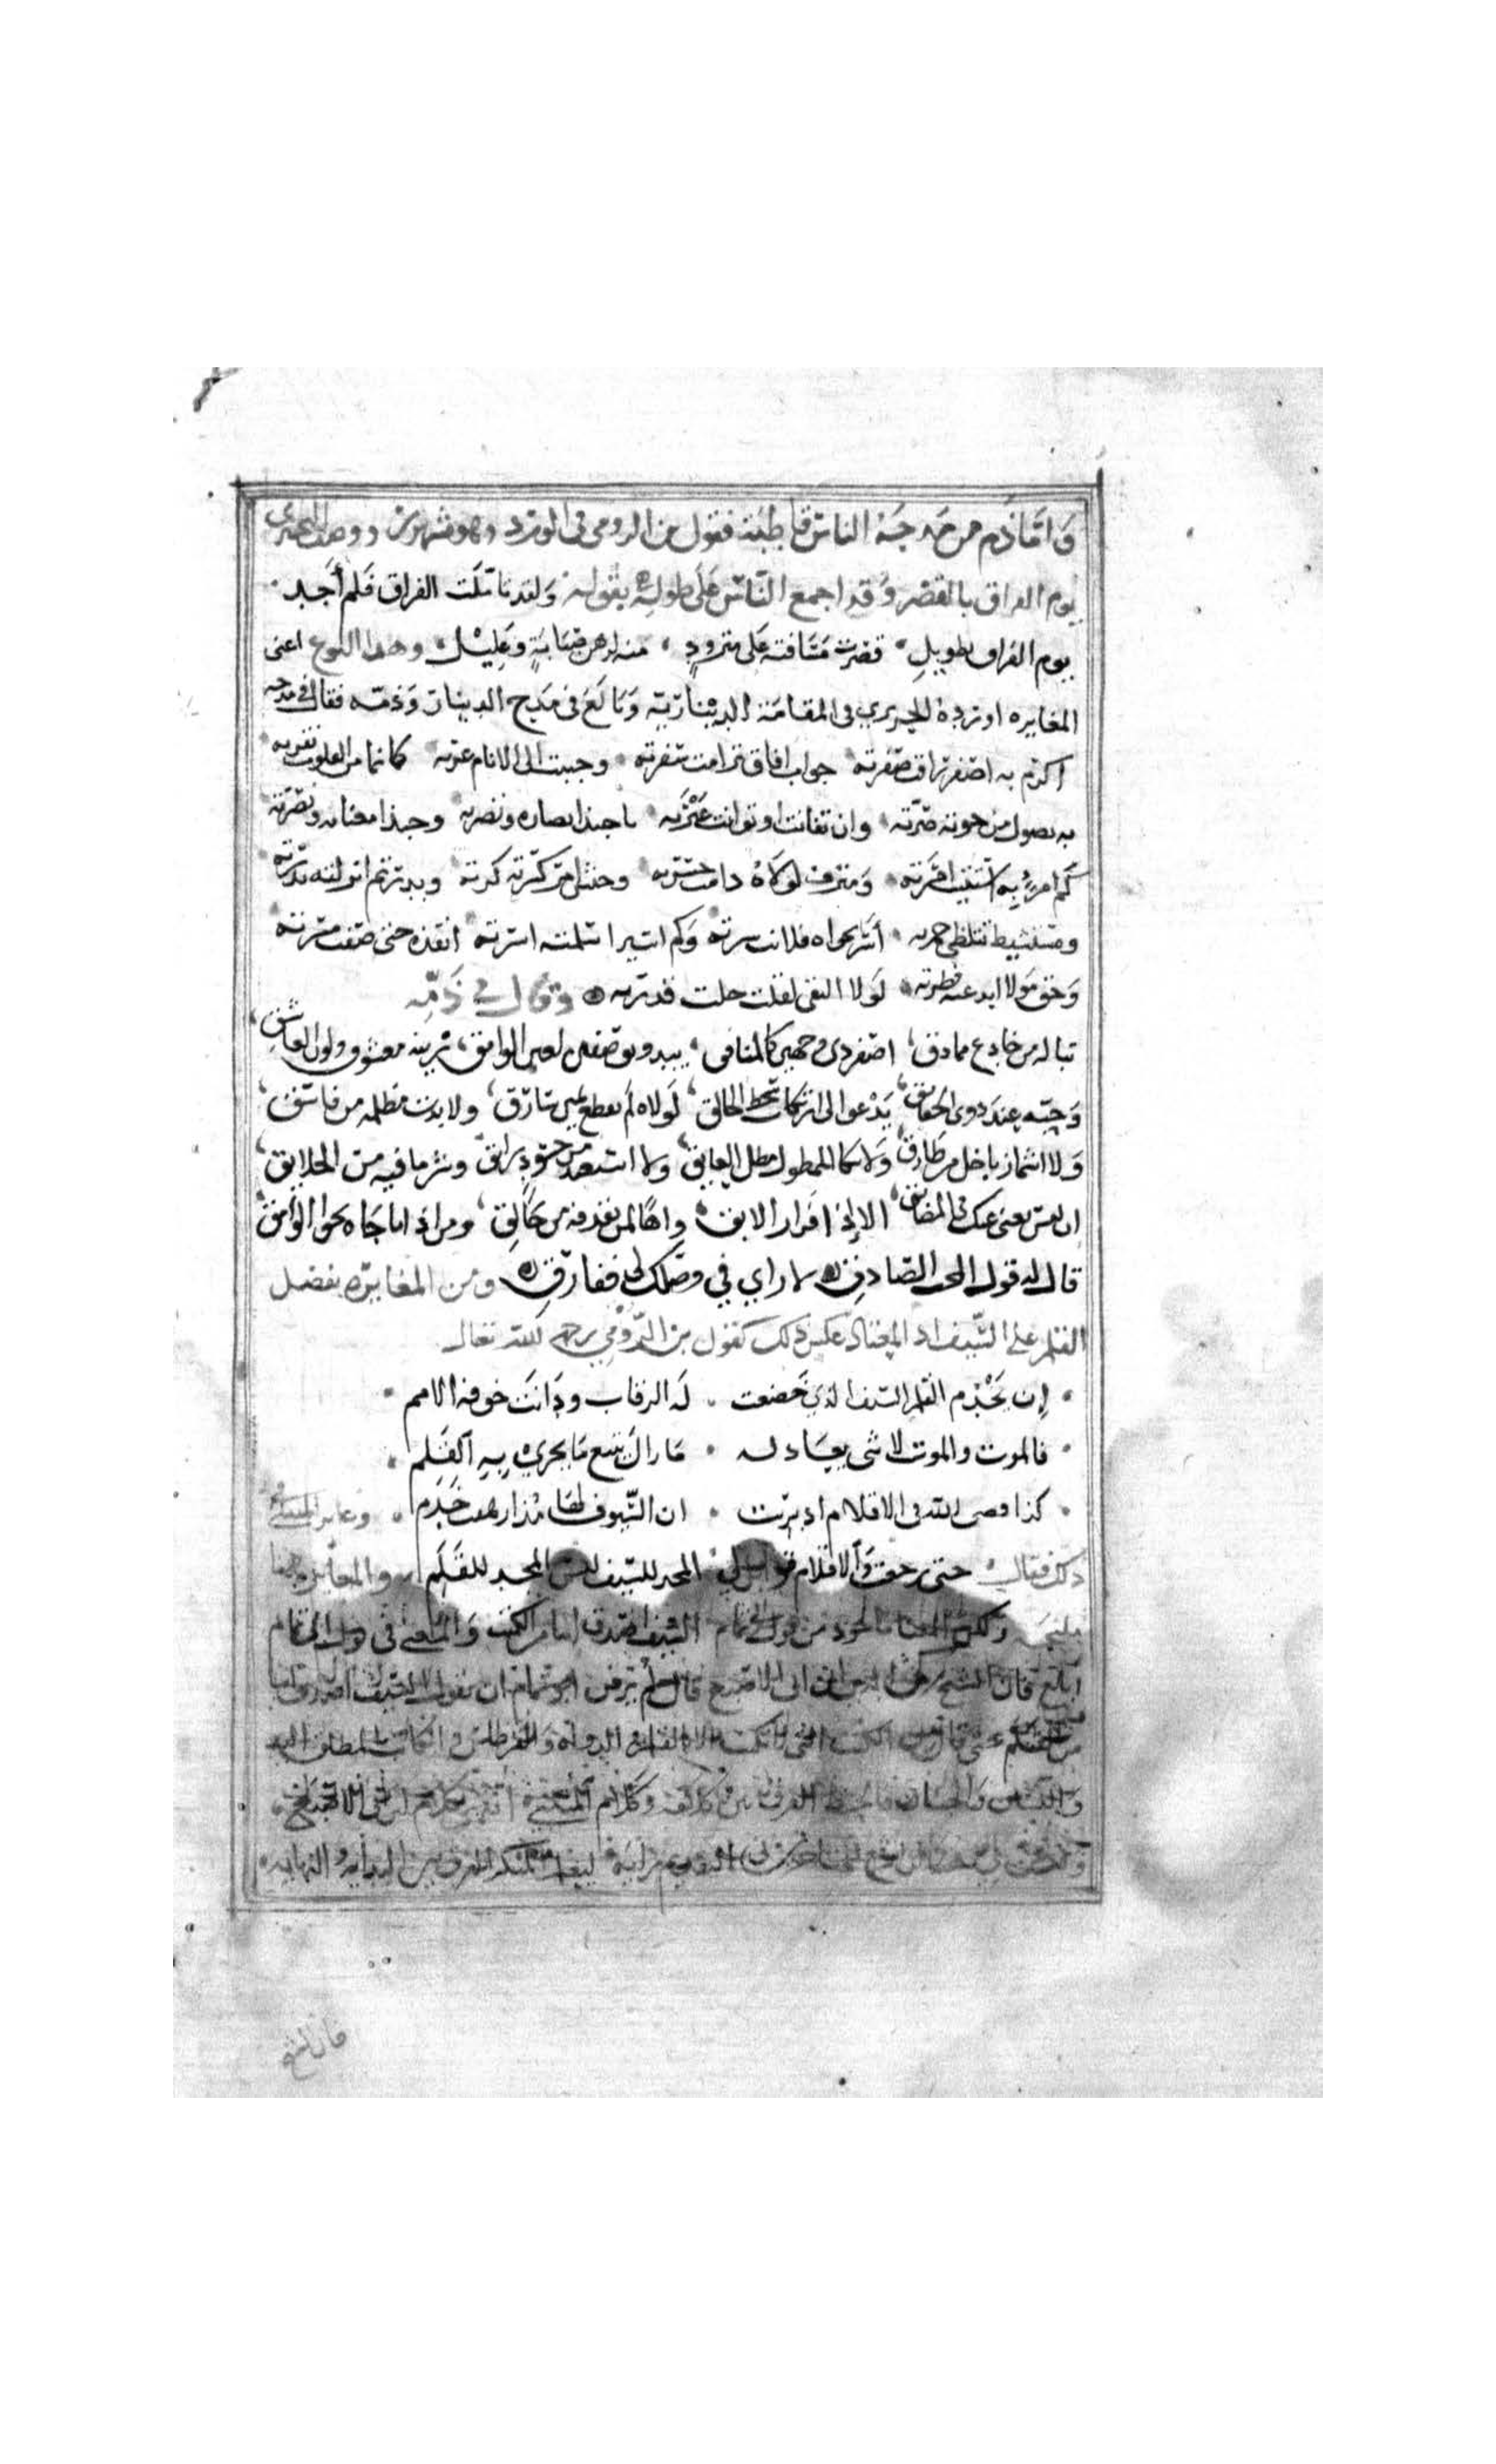 واما ذم من مدحته الناس قاطبة فقول بن الرومي في الورد وهو مشهور ووصف البحتري
يوم الفراق بالقصر وقد اجمع الناس على طوله بقوله ولقد تاملت الفراق فلم أجد
يوم الفراق بطويل قصرت مسافته على متزود منه لدهر صبابة وعليل وهذا النوع اعني
المغايره اورده الحريري في المقامة الدينارية وبالغ في مدح الدينار وذمه فقال في مدحه
اكرم به اصفر راقت صفرته جواب افاق ترامت سفرته وحببت الى الانام غرته كانما من القلوب نقرته
به يصول من حوته صرته وان تفانت او توانت عترته ياحبذا نضاره ونضرته وحبذا مغناته ونصرته
كم امر به استتبت امرته ومترف لولاه دامت حسرته وجيش هم كرته وبدر تم انزلته بدرته
ومستشيط تتلظى جمرته أسر نجواه فلانت شرته وكم اسير اسلمته اسرته انقذه حتى صفت مسرته
وحق مولا ابدعته فطرته لولا التقى لقلت جلت قدرته وقال في ذمه
تبا له من خادع مماذق اصفر ذي وجهين كالمنافق يبدو بوصفين لعين الوامق زينة معشوق ولون العاشق
وحبه عند ذوي الحقايق يدعوا الى ارتكاب سخط الخالق لولاه لم تقطع يمين سارق ولا بدت مظلمه من فاسق
ولا اشماز باخل من طارق ولا شكا الممطول مطل العايق ولا استعيذ من حسود راشق وشر ما فيه من الخلايق
ان ليس يغني عنك في المضايق الا اذا فر فرار الابق واها لمن يقذفه من حالق ومن اذا ناجاه نجوا الوامق
قال له قول المحق الصادق لا راي في وصلك لي ففارق ومن المغايره بفضل
القلم على السيف اذ المعتاد عكس ذلك كقول بن الرومي رحمه الله تعالى
ان يخدم القلم السيف الذي خضعت له الرقاب ودانت خوفه الامم
فالموت والموت لا شي يعادله ما زال يتبع ما يجري به القلم
كذا قضى الله في الاقلام اذ بريت ان السيوف لها مذ ارهفت خدم وغاير المتنبي
ذلك فقال حتى رجعت والاقلام قوايل لي المجد للسيف ليس المجد للقلم والمغايره بينهما
ولكن المعنا ماخوذ من قول ابي تمام السيف اصدق انباء من الكتب والمعنى في قول ابي تمام
ابلغ قال الشيخ ابن ابي الاصبع قال لم يرض ابو تمام ان يقول السيف اصدق انباء
من القلم حتى قال من الكتب التي لا تكتب الا بالقلم والدواة والقرطاس والكاتب المطلق اليد
واللسان والجنان فالحظ الفرق بين كلامه وكلام المتنبي
بين البدايه والنهايه
قال الشيخ